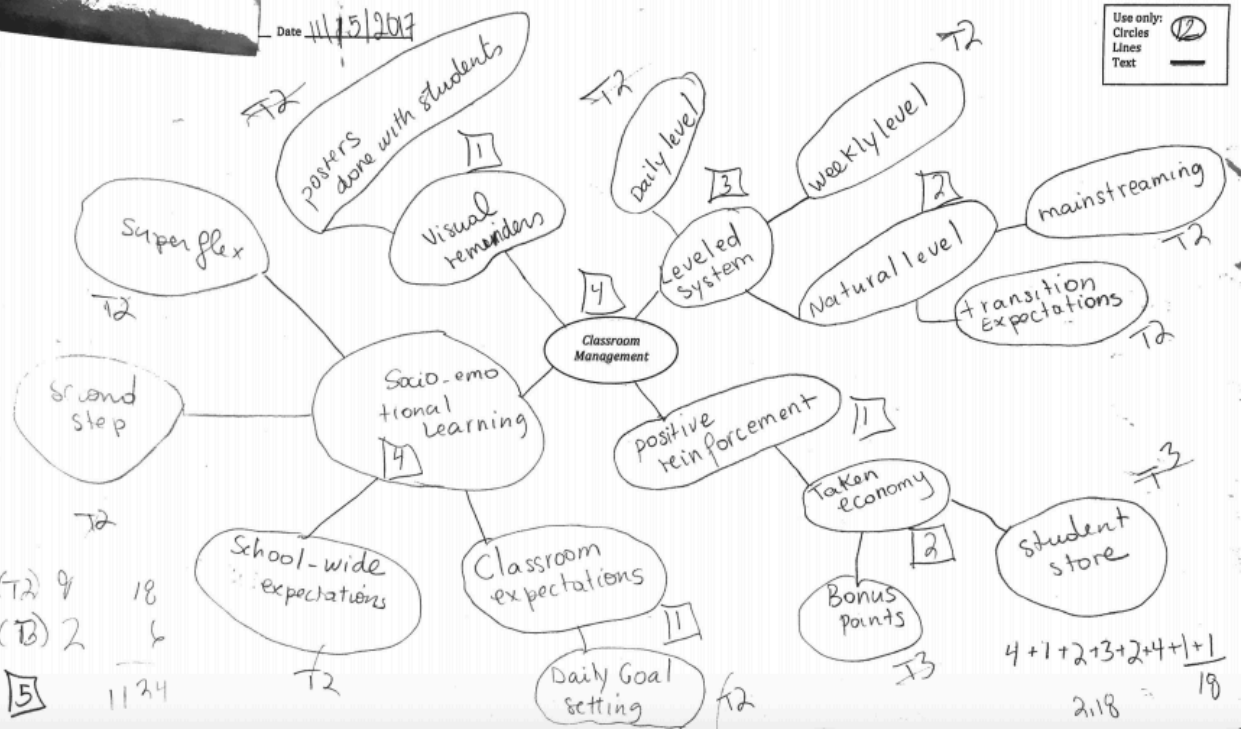 Date 11/15/2017
Use only:
Circles
Lines
Text
12
T2
posters
done with students
1
Visual
reminders
T2
Daily level
T2
weekly level
3
Leveled
system
2
Natural level
mainstreaming
T2
transition
Expectations
T2
Superflex
T2
4
Classroom
Management
Second
step
T2
Socio-emo
tional
Learning
4
positive
reinforcement
1
Taken
economy
2
T3
student
store
Bonus
points
T3
School-wide
expectations
T2
Classroom
expectations
1
Daily Goal
setting
T2
(T2) 9 18
(T3) 2 6
5
11 24
4+1+2+3+2+4+1+1
18
2,18